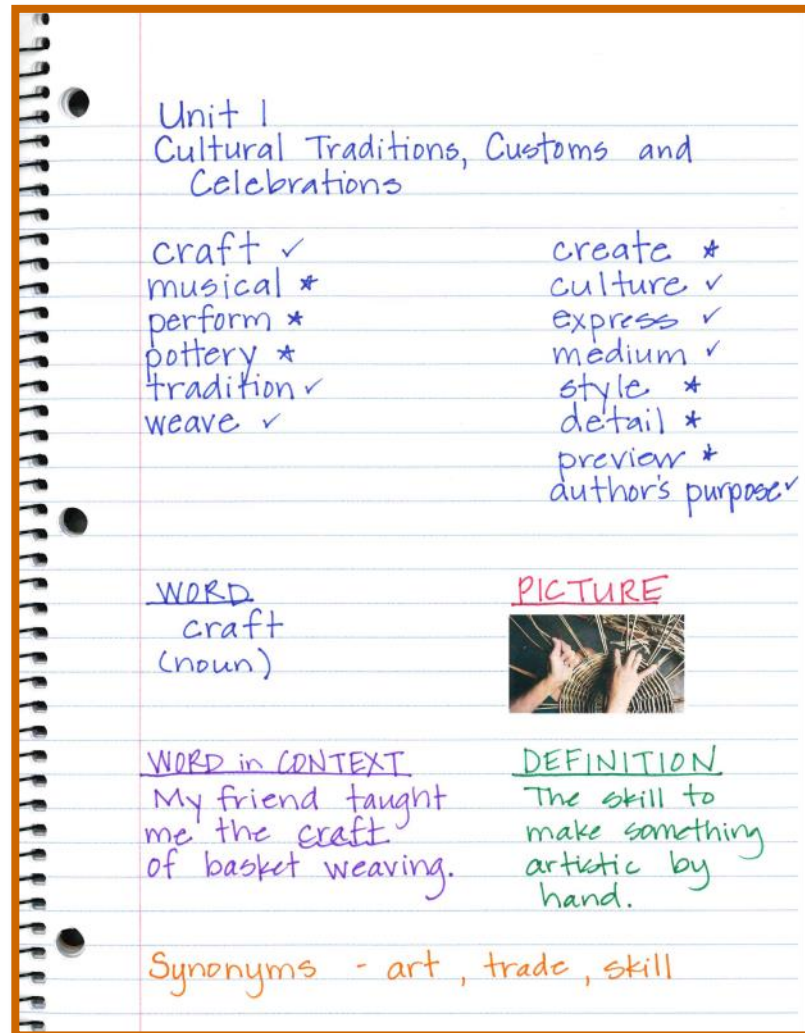 Unit 1
Cultural Traditions, Customs and
Celebrations
craft ✓
musical *
perform *
pottery *
tradition ✓
weave ✓
create *
culture ✓
express ✓
medium ✓
style *
detail *
preview *
author's purpose ✓
WORD
craft
(noun)
PICTURE
WORD in CONTEXT
My friend taught
me the craft
of basket weaving.
DEFINITION
The skill to
make something
artistic by
hand.
Synonyms - art, trade, skill